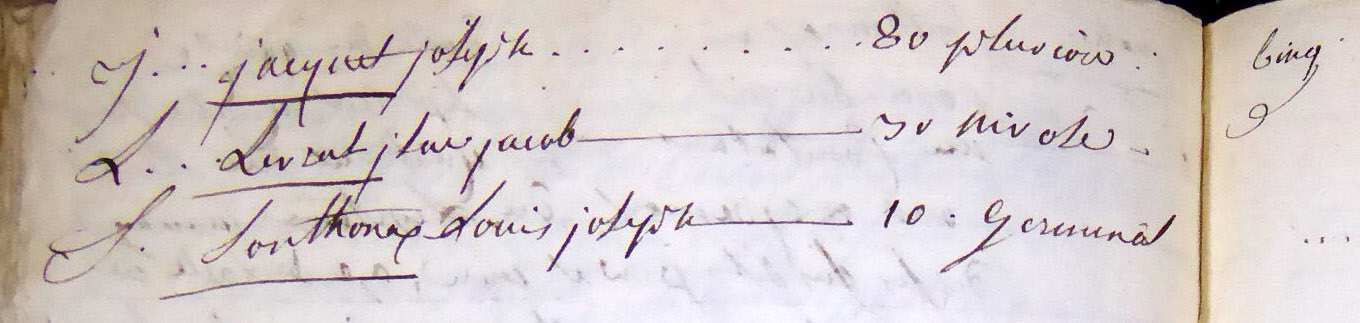 J... jacquet joseph .......... 30 pluviose.
L.. Levrat jean jacob — 30 Nivose
S. Sonthonax Louis joseph — 10. Germinal